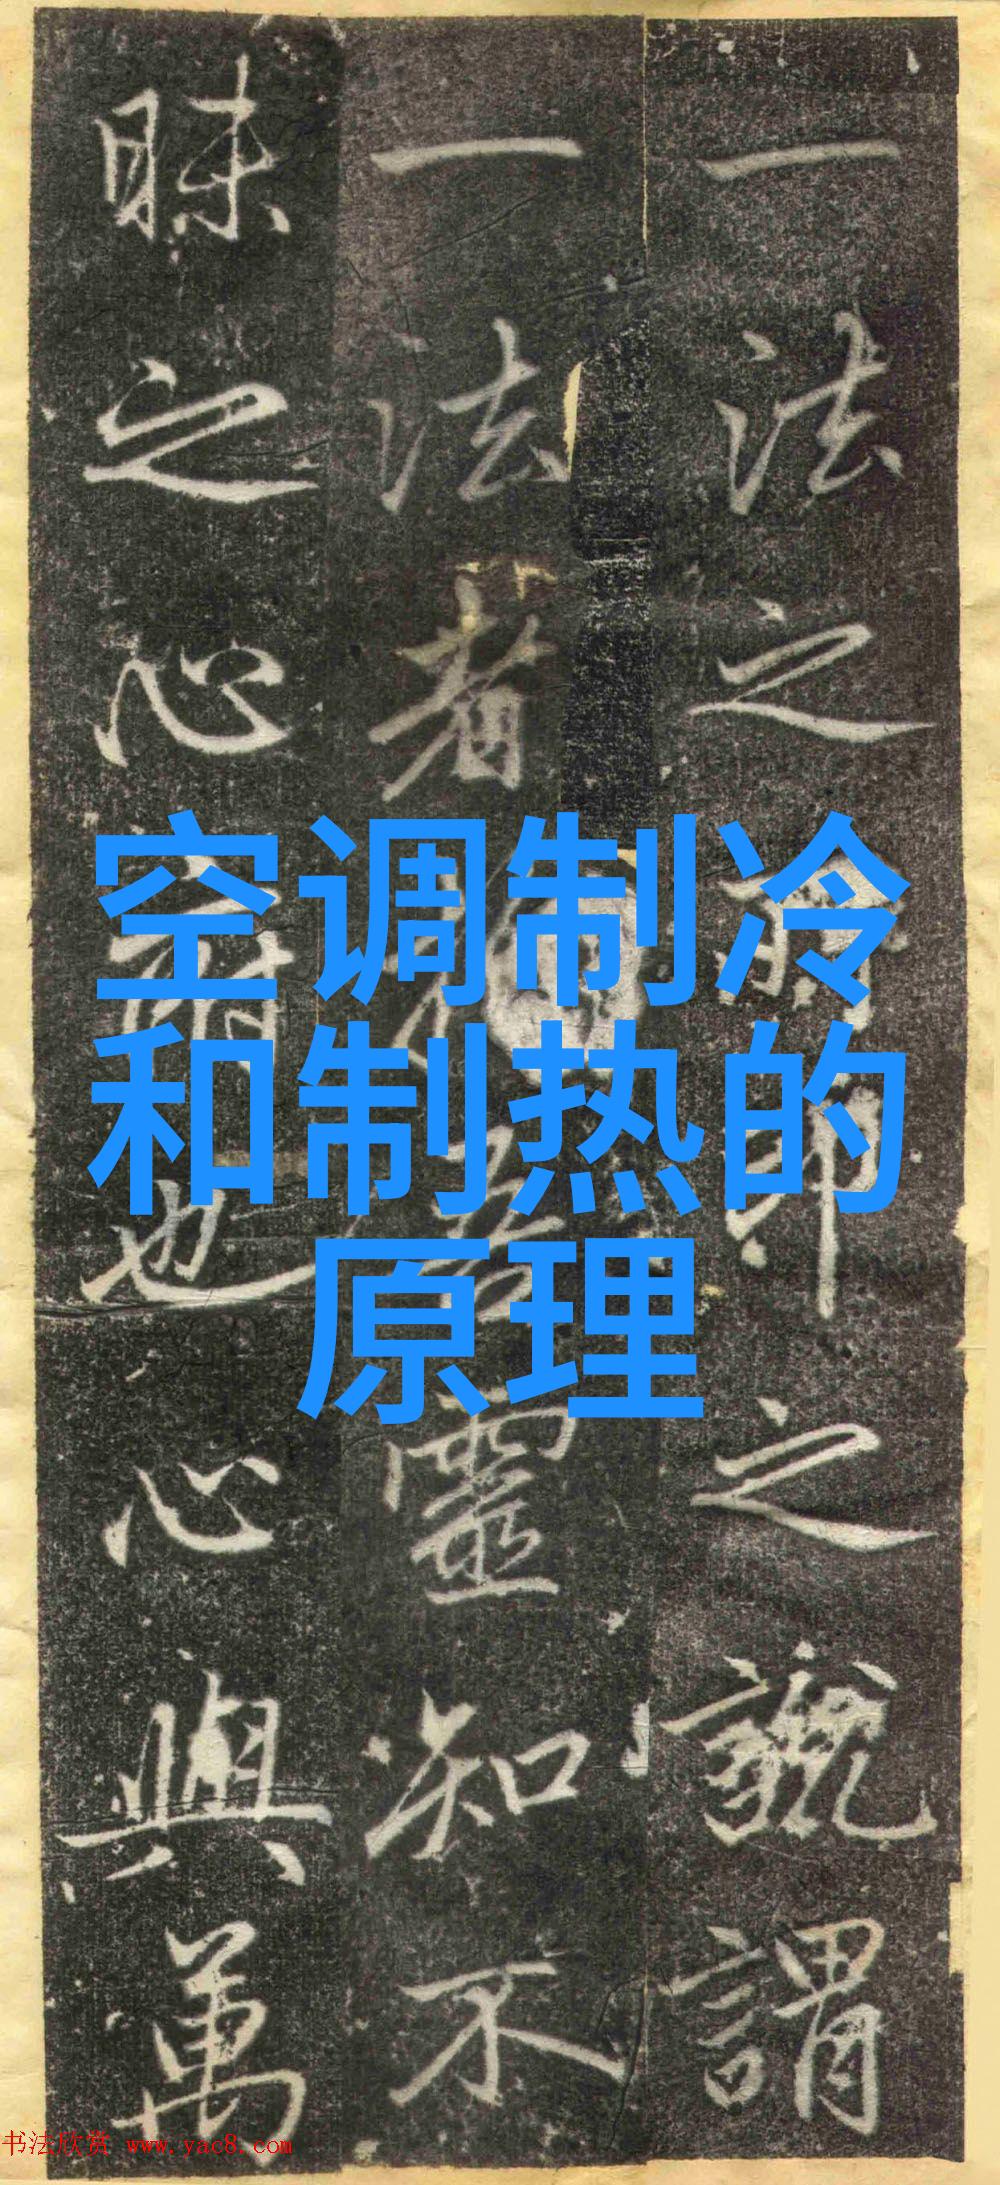 空调制冷
和制热的
原理
一法之印之號謂
一法者靈知不
昧之心也心與萬
书法欣赏 www.yac8.com